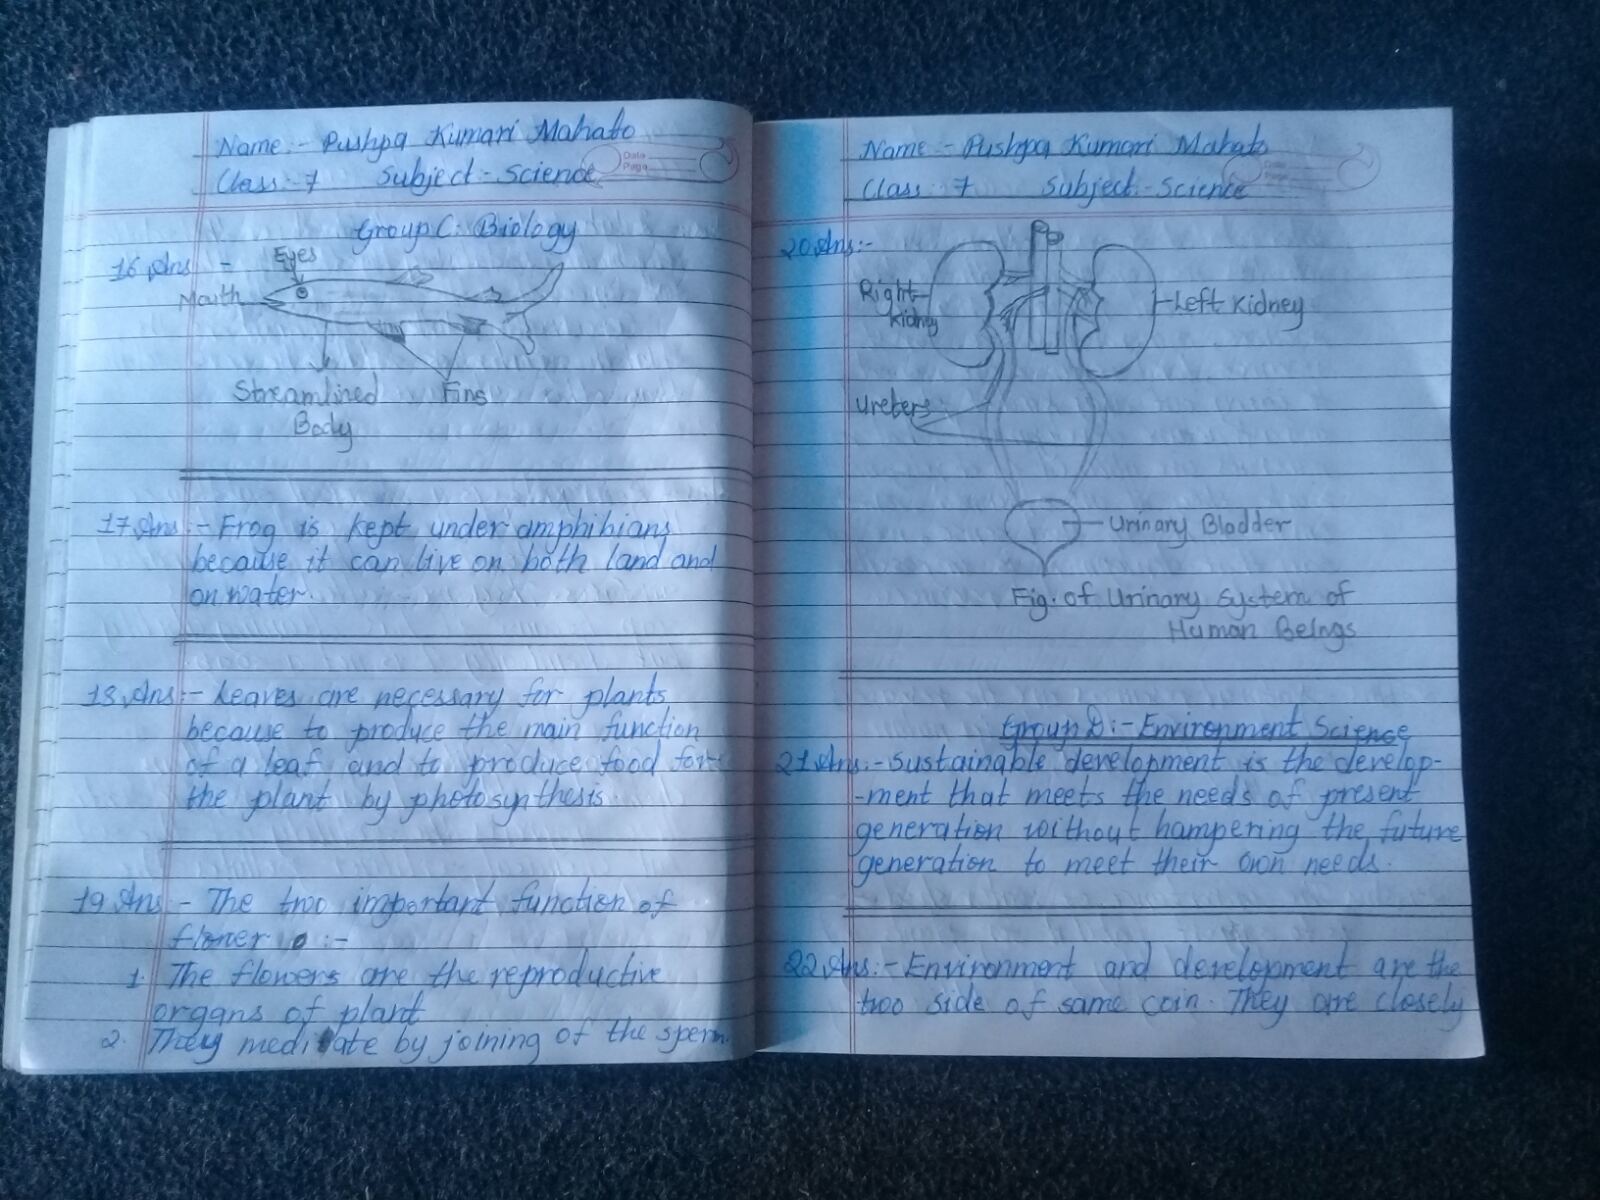 Name:- Pushpa Kumari Mahato
Class:-7 Subject:-Science
Date
Page
Group C: Biology
16 Ans -
Eyes
Mouth
Streamlined
Body
Fins
17 Ans:- Frog is kept under amphibians
because it can live on both land and
on water.
18 Ans:- Leaves are necessary for plants
because to produce the main function
of a leaf and to produce food for
the plant by photosynthesis.
19 Ans:- The two important function of
flower :-
1. The flowers are the reproductive
organs of plant
2. They meditate by joining of the sperm
Name:- Pushpa Kumari Mahato
Class:-7 Subject:-Science
Date
Page
20 Ans:-
Right
kidney
Left Kidney
Ureters
Urinary Bladder
Fig. of Urinary System of
Human Beings
Group D:- Environment Science
21 Ans:- Sustainable development is the develop-
-ment that meets the needs of present
generation without hampering the future
generation to meet their own needs.
22 Ans:- Environment and development are the
two side of same coin. They are closely